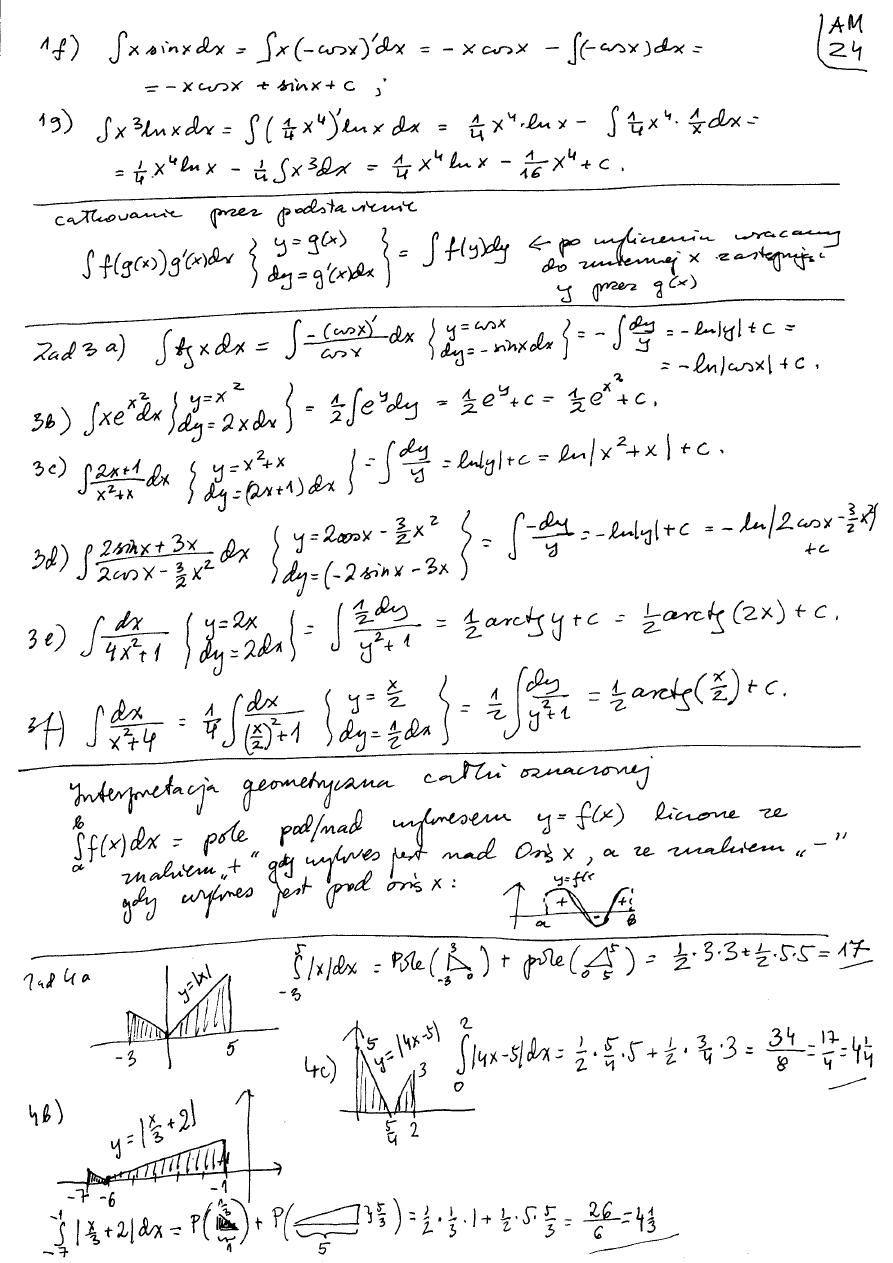 AM
24
1f) ∫x sinx dx = ∫x(-cosx)'dx = -x cosx - ∫(-cosx)dx =
= -x cosx + sinx + c ;
1g) ∫x³lnx dx = ∫(1/4 x⁴)' ln x dx = 1/4 x⁴·ln x - ∫1/4 x⁴·1/x dx =
= 1/4 x⁴ ln x - 1/4 ∫x³dx = 1/4 x⁴ ln x - 1/16 x⁴ + c.
całkowanie przez podstawienie
∫f(g(x))g'(x)dx { y=g(x) dy=g'(x)dx } = ∫f(y)dy ← po wyliczeniu wracamy
do zmiennej x zastępując
y przez g(x)
Zad 3 a) ∫tg x dx = ∫ -(cosx)'/cosx dx { y=cosx dy=-sinx dx } = -∫dy/y = -ln|y|+c =
= -ln|cosx|+c.
3b) ∫xe^(x²)dx { y=x² dy=2xdx } = 1/2∫e^y dy = 1/2 e^y+c = 1/2 e^(x²)+c.
3c) ∫(2x+1)/(x²+x) dx { y=x²+x dy=(2x+1)dx } = ∫dy/y = ln|y|+c = ln|x²+x|+c.
3d) ∫(2sinx+3x)/(2cosx-3/2x²) dx { y=2cosx-3/2x² dy=(-2sinx-3x } = ∫-dy/y = -ln|y|+c = -ln|2cosx-3/2x²|
+c
3e) ∫dx/(4x²+1) { y=2x dy=2dx } = ∫(1/2 dy)/(y²+1) = 1/2 arctg y+c = 1/2 arctg(2x)+c.
3f) ∫dx/(x²+4) = 1/4∫dx/((x/2)²+1) { y=x/2 dy=1/2dx } = 1/2∫dy/(y²+1) = 1/2 arctg(x/2)+c.
Interpretacja geometryczna całki oznaczonej
∫_a^b f(x)dx = pole pod/nad wykresem y=f(x) liczone ze
znakiem „+" gdy wykres jest nad Osią x, a ze znakiem „-"
gdy wykres jest pod osią x:
y=f(x
+ - +
a b
Zad 4a
y=|x|
-3 5
∫_-3^5 |x|dx = Pole( 3 -3 0 ) + pole( 5 0 5 ) = 1/2·3·3+1/2·5·5 = 17
4c)
5 y=|4x-5| 3
5/4 2
∫_0^2 |4x-5|dx = 1/2·5/4·5 + 1/2·3/4·3 = 34/8 = 17/4 = 4 1/4
4b)
y=|x/3+2|
-7 -6 -1
∫_-7^-1 |x/3+2|dx = P( 1/3 1 ) + P( 5 }5/3 ) = 1/2·1/3·1 + 1/2·5·5/3 = 26/6 = 4 1/3